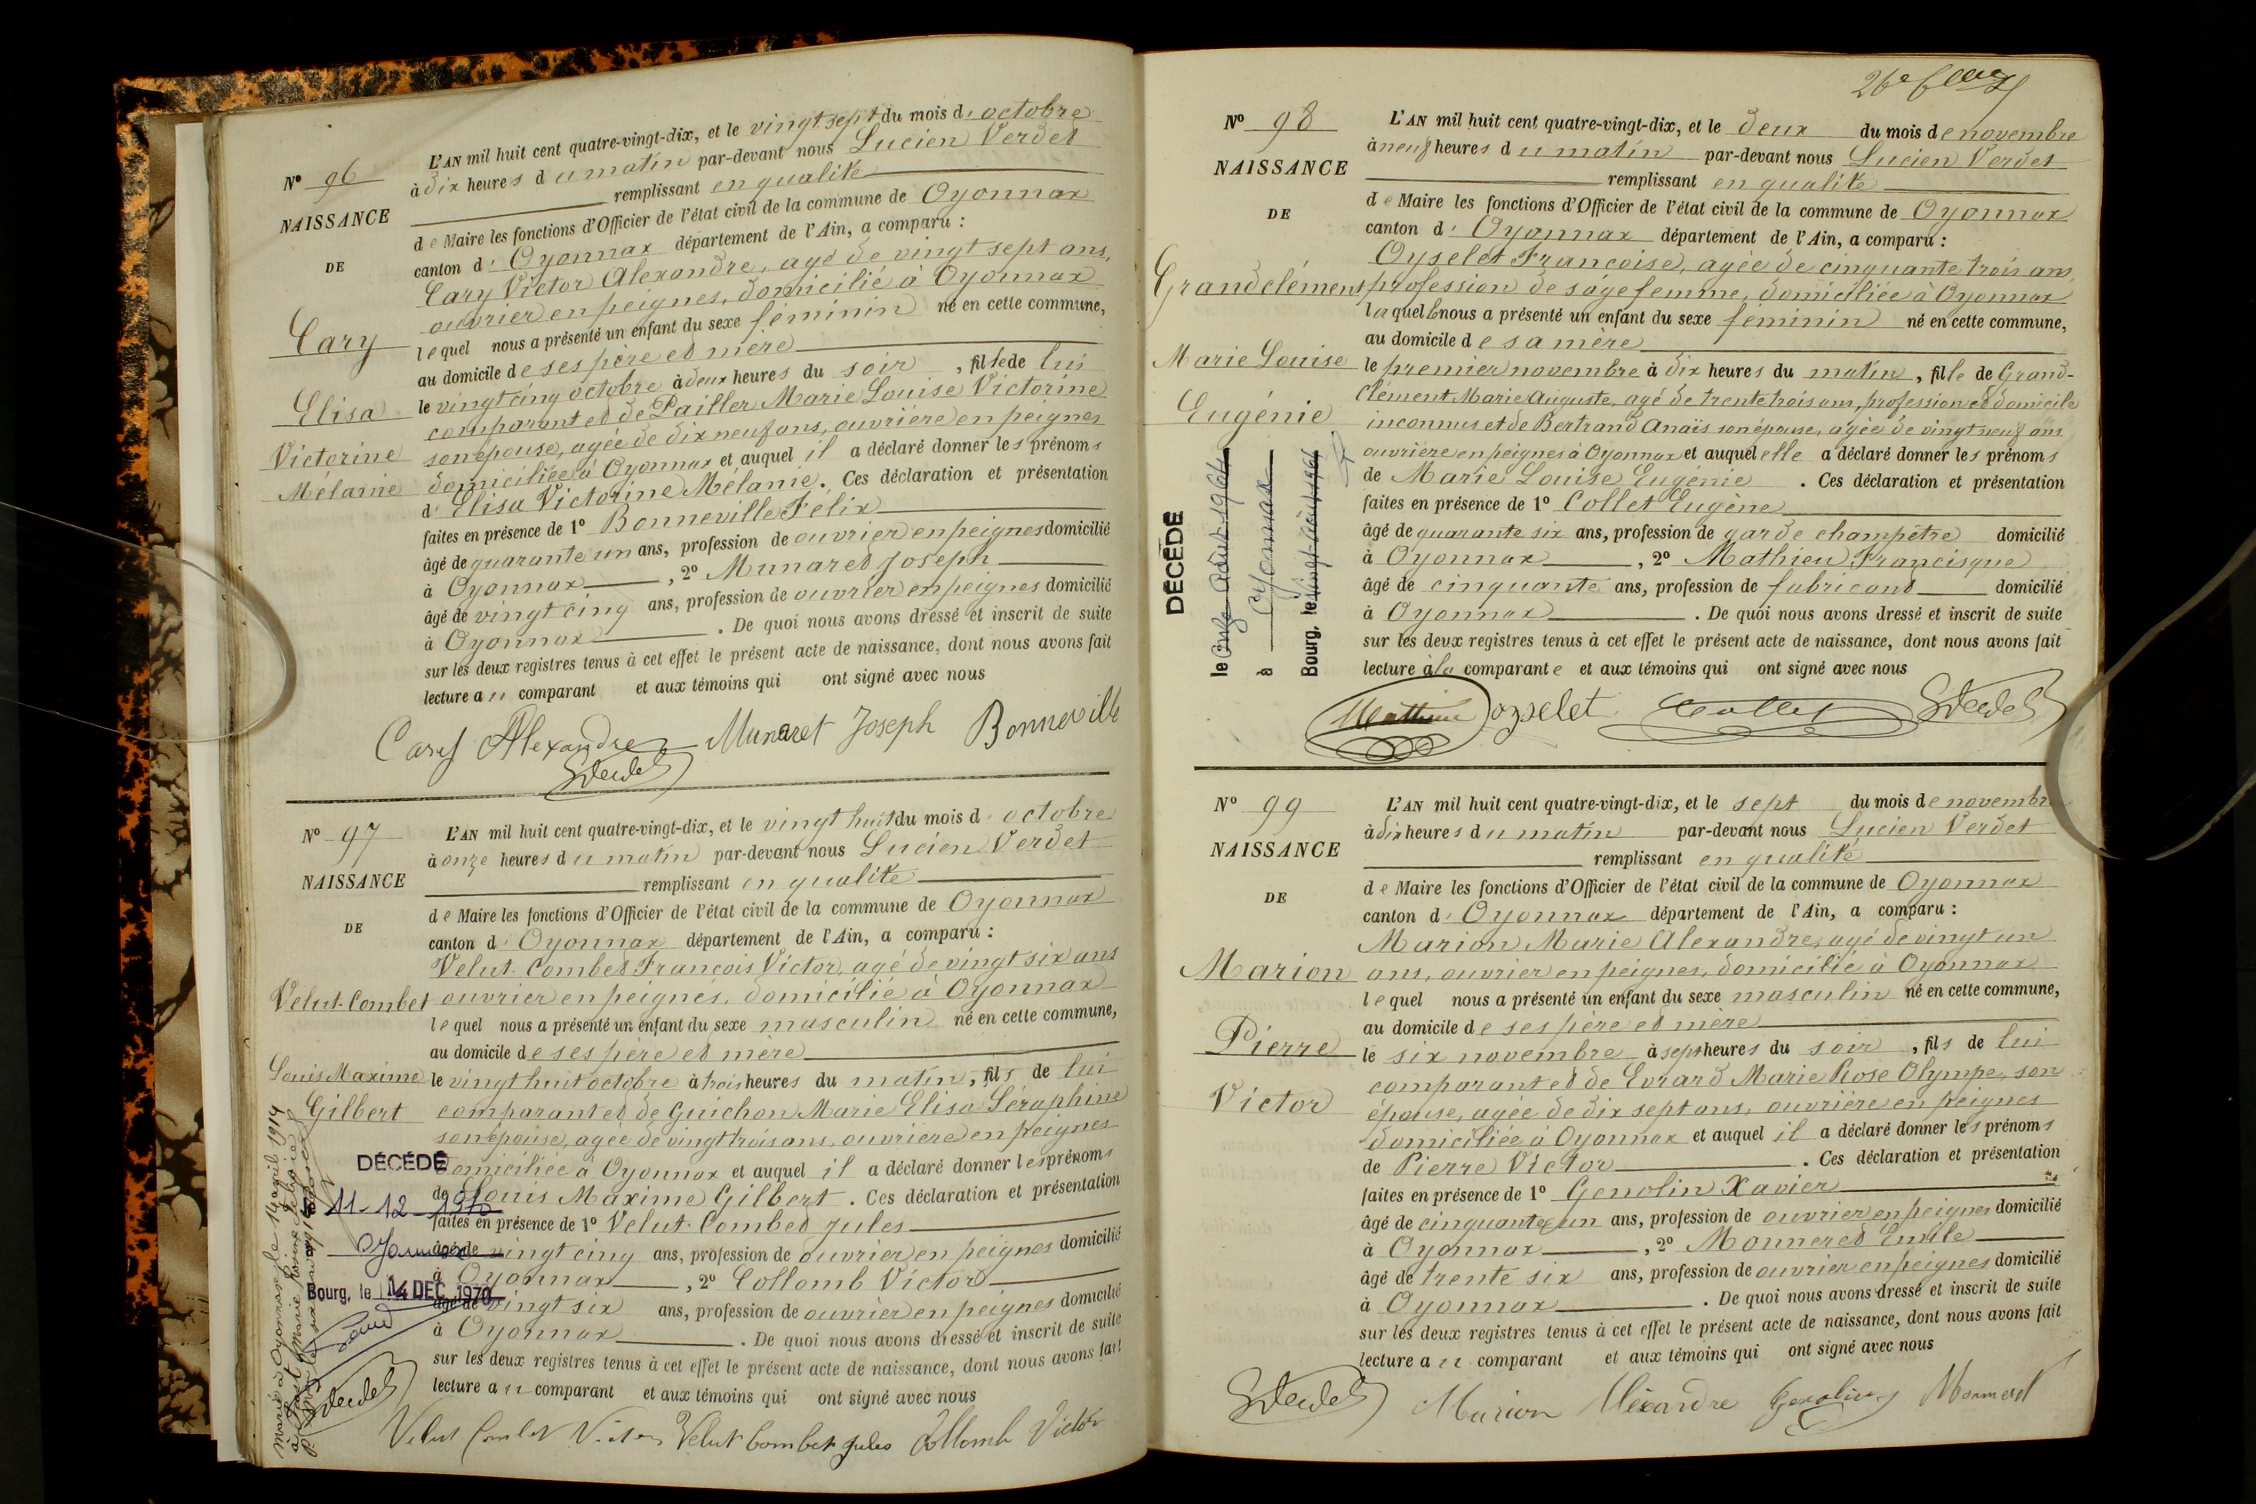 N° 96
NAISSANCE
DE
Cary
Elisa
Victorine
Mélanie
L'AN mil huit cent quatre-vingt-dix, et le vingt sept du mois d' octobre
à dix heures du matin par-devant nous Lucien Verdet
remplissant en qualité
de Maire les fonctions d'Officier de l'état civil de la commune de Oyonnax
canton d' Oyonnax département de l'Ain, a comparu :
Cary Victor Alexandre, agé de vingt sept ans,
ouvrier en peignes, domicilié à Oyonnax
lequel nous a présenté un enfant du sexe féminin né en cette commune,
au domicile de ses père et mère
le vingt cinq octobre à deux heures du soir , fille de lui
comparant et de Pailler Marie Louise Victorine
son épouse, agée de dix neuf ans, ouvrière en peignes
domiciliée à Oyonnax et auquel il a déclaré donner les prénoms
d' Elisa Victorine Mélanie. Ces déclaration et présentation
faites en présence de 1° Bonneville Félix
âgé de quarante un ans, profession de ouvrier en peignes domicilié
à Oyonnax , 2° Munaret Joseph
âgé de vingt cinq ans, profession de ouvrier en peignes domicilié
à Oyonnax . De quoi nous avons dressé et inscrit de suite
sur les deux registres tenus à cet effet le présent acte de naissance, dont nous avons fait
lecture au comparant et aux témoins qui ont signé avec nous
Cary Alexandre Munaret Joseph Bonneville
N° 97
NAISSANCE
DE
Velut-Combet
Louis Maxime
Gilbert
L'AN mil huit cent quatre-vingt-dix, et le vingt huit du mois d' octobre
à onze heures du matin par-devant nous Lucien Verdet
remplissant en qualité
de Maire les fonctions d'Officier de l'état civil de la commune de Oyonnax
canton d' Oyonnax département de l'Ain, a comparu :
Velut-Combet François Victor, agé de vingt six ans
ouvrier en peignes, domicilié à Oyonnax
lequel nous a présenté un enfant du sexe masculin né en cette commune,
au domicile de ses père et mère
le vingt huit octobre à trois heures du matin, fils de lui
comparant et de Guichon Marie Elisa Séraphine
son épouse, agée de vingt trois ans, ouvrière en peignes
domiciliée à Oyonnax et auquel il a déclaré donner les prénoms
de Louis Maxime Gilbert. Ces déclaration et présentation
faites en présence de 1° Velut-Combet Jules
âgé de vingt cinq ans, profession de ouvrier en peignes domicilié
à Oyonnax , 2° Collomb Victor
âgé de vingt six ans, profession de ouvrier en peignes domicilié
à Oyonnax . De quoi nous avons dressé et inscrit de suite
sur les deux registres tenus à cet effet le présent acte de naissance, dont nous avons fait
lecture au comparant et aux témoins qui ont signé avec nous
Velut Combet Victor Velut Combet Jules Collomb Victor
DÉCÉDÉ
11-12-1970
Oyonnax
Bourg, le 14 DEC 1970
Marié à Oyonnax le 14 avril 1914
N° 98
NAISSANCE
DE
Grandclément
Marie Louise
Eugénie
L'AN mil huit cent quatre-vingt-dix, et le deux du mois de novembre
à neuf heures du matin par-devant nous Lucien Verdet
remplissant en qualité
de Maire les fonctions d'Officier de l'état civil de la commune de Oyonnax
canton d' Oyonnax département de l'Ain, a comparu :
Oyselet Françoise, agée de cinquante trois ans,
profession de sage femme, domiciliée à Oyonnax
laquelle nous a présenté un enfant du sexe féminin né en cette commune,
au domicile de sa mère
le premier novembre à dix heures du matin, fille de Grand-
Clément Marie Auguste, agé de trente trois ans, profession et domicile
inconnus et de Bertrand Anaïs son épouse, agée de vingt neuf ans
ouvrière en peignes à Oyonnax et auquel elle a déclaré donner les prénoms
de Marie Louise Eugénie . Ces déclaration et présentation
faites en présence de 1° Collet Eugène
âgé de quarante six ans, profession de garde champêtre domicilié
à Oyonnax , 2° Mathieu Francisque
âgé de cinquante ans, profession de fabricant domicilié
à Oyonnax . De quoi nous avons dressé et inscrit de suite
sur les deux registres tenus à cet effet le présent acte de naissance, dont nous avons fait
lecture à la comparante et aux témoins qui ont signé avec nous
Mathieu Oyselet Collet
DÉCÉDÉ
le onze Août 1964
à Oyonnax
Bourg, le vingt Août 1964
N° 99
NAISSANCE
DE
Marion
Pierre
Victor
L'AN mil huit cent quatre-vingt-dix, et le sept du mois de novembre
à dix heures du matin par-devant nous Lucien Verdet
remplissant en qualité
de Maire les fonctions d'Officier de l'état civil de la commune de Oyonnax
canton d' Oyonnax département de l'Ain, a comparu :
Marion Marie Alexandre, agé de vingt un
ans, ouvrier en peignes, domicilié à Oyonnax
lequel nous a présenté un enfant du sexe masculin né en cette commune,
au domicile de ses père et mère
le six novembre à sept heures du soir , fils de lui
comparant et de Evrard Marie Rose Olympe, son
épouse, agée de dix sept ans, ouvrière en peignes
domiciliée à Oyonnax et auquel il a déclaré donner les prénoms
de Pierre Victor . Ces déclaration et présentation
faites en présence de 1° Genolin Xavier
âgé de cinquante un ans, profession de ouvrier en peignes domicilié
à Oyonnax , 2° Monneret Emile
âgé de trente six ans, profession de ouvrier en peignes domicilié
à Oyonnax . De quoi nous avons dressé et inscrit de suite
sur les deux registres tenus à cet effet le présent acte de naissance, dont nous avons fait
lecture au comparant et aux témoins qui ont signé avec nous
Marion Alexandre Genolin Monneret